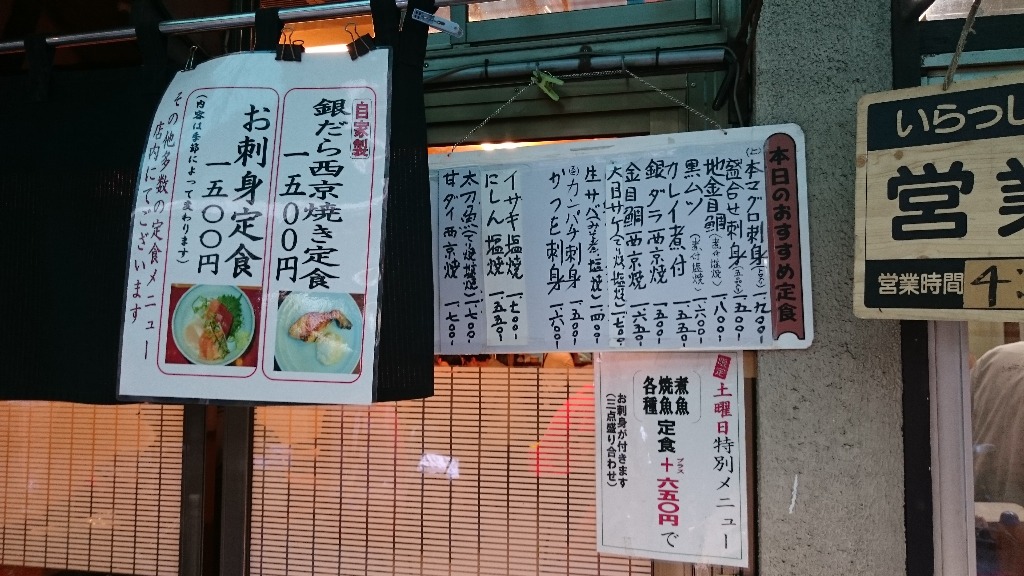 自家製
銀だら西京焼き定食
一五〇〇円
お刺身定食
(内容は季節によって変わります)
一五〇〇円
その他多数の定食メニュー
店内にてございます
本日のおすすめ定食
本マグロ刺身
一九〇〇-
盛合せ刺身
一五〇〇-
地金目鯛(煮付塩焼)
一八〇〇-
黒ムツ(煮付塩焼)
一六〇〇-
カレイ煮付
一五五〇-
銀ダラ西京焼
一五五〇-
金目鯛西京焼
一六五〇-
塩焼
一七五〇-
生サバ塩焼
一四〇〇-
カンパチ刺身
一五〇〇-
カツヲ刺身
一六〇〇-
イサキ塩焼
一七〇〇-
にしん塩焼
一五五〇-
太刀魚塩焼
一七〇〇-
甘ダイ西京焼
一七〇〇-
限定
土曜日特別メニュー
煮魚
焼魚定食+六五〇円で
プラス
各種
お刺身が付きます
(三点盛り合わせ)
いらっし
営業
営業時間
4: